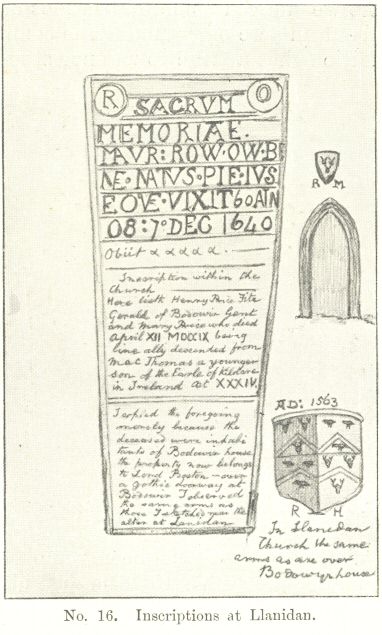 R SACRVM O
MEMORIAE.
MAVR: ROW·OW·B
NE·NATVS·PIE·IVS
EQVE·VIXIT 60 ATN
08:7º DEC 1640
Obiit
Inscription within the
Church
Here lieth Henry Price Fitz
Gerald of Bodowir Gent
and Mary Price who died
April XII MDCCIX being
line ally descended from
Mac Thomas a younger
son of the Earle of Kildare
in Ireland æt XXXIV.
I copied the foregoing
merely because the
deceased were inhabi
tants of Bodowir house
the property now belongs
to Lord Boston – over
a gothic doorway at
Bodowir I observed
the same arms as
those I sketched near the
alter at Lanidan
R M
AD: 1563
R H
In Llanidan
Church the same
arms as are over
Bodowyr house
No. 16. Inscriptions at Llanidan.